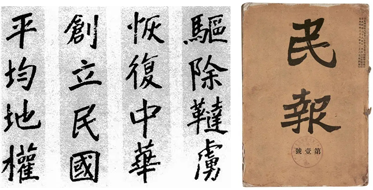 驅除韃虜
恢復中華
創立民國
平均地權
民報
第壹號